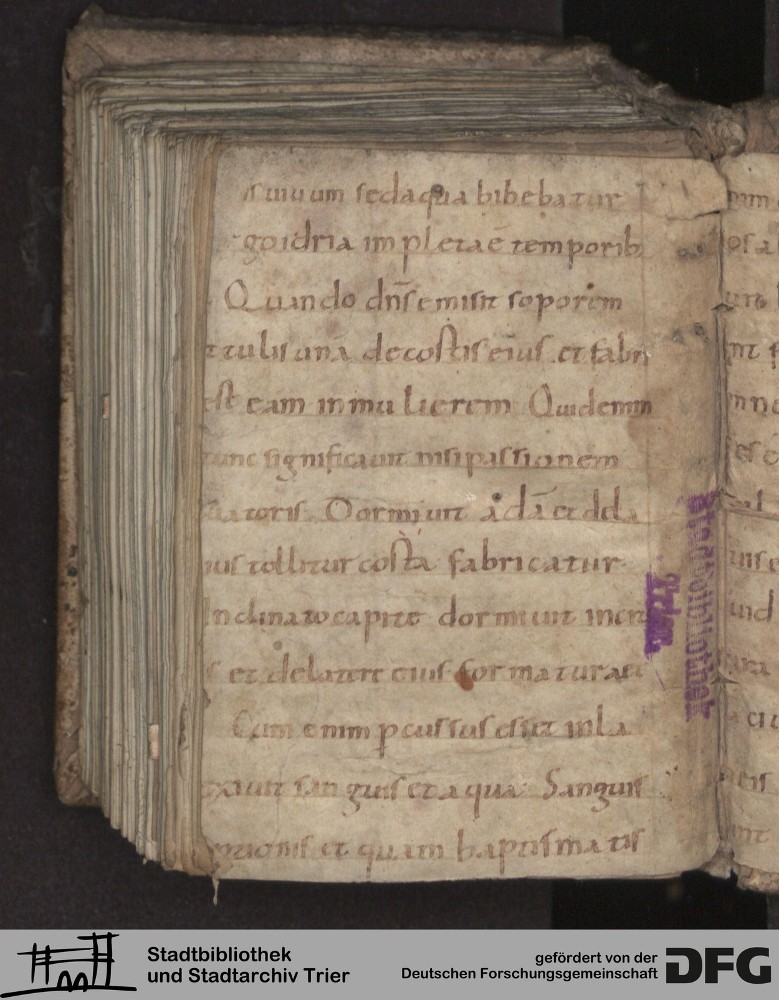 s uiuum sed aqua bibebatur
go idria impletae temporib
Quando dn̄s emisit soporem
t tulit unā de costis eius et fabri
est eam in mulierem Quid enim
tunc significauit nisi passionem
uatoris Dormiuit adā et d
ius tollitur costa fabricatur
Inclinato capite dormiuit in cru
s et de latere eius formatur
Cum enim ꝑcussus esset in la
exiuit sanguis et aqua Sanguis
mptionis et quam baptismatis
Stadtbibliothek
Trier
Stadtbibliothek
und Stadtarchiv Trier
gefördert von der
Deutschen Forschungsgemeinschaft
DFG